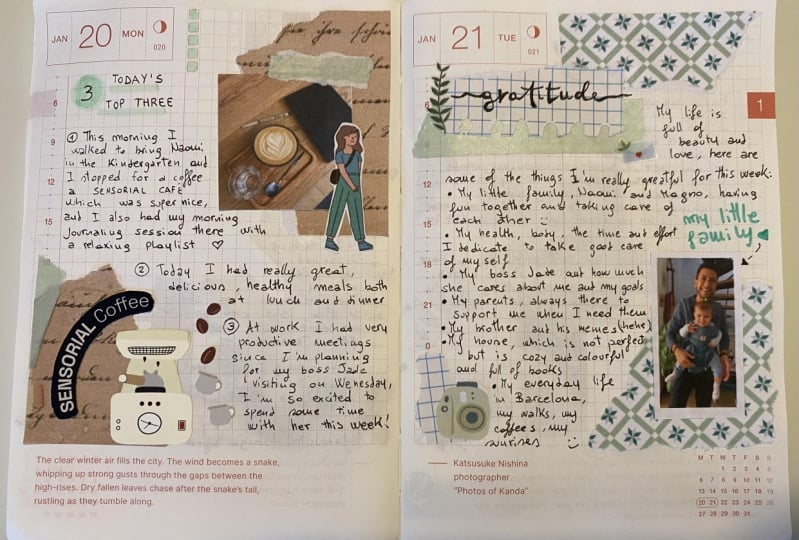 JAN 20 MON
020
3 TODAY'S
TOP THREE
① This morning I
walked to bring Naomi
in the Kindergarten and
I stopped for a coffee
a SENSORIAL CAFÈ
which was super nice,
and I also had my morning
Journaling session there with
a relaxing playlist ♡
② Today I had really great,
delicious, healthy meals both
at lunch and dinner
③ At work I had very
productive meetings
since I'm planning
for my boss Jade
visiting on Wenesday,
I'm so excited to
spend some time
with her this week!
SENSORIAL Coffee
6
9
12
15
18
21
The clear winter air fills the city. The wind becomes a snake,
whipping up strong gusts through the gaps between the
high-rises. Dry fallen leaves chase after the snake's tail,
rustling as they tumble along.
JAN 21 TUE
021
1
gratitude
My life is
full of
beauty and
love, here are
some of the things I'm really greatful for this week:
• My little family, Naomi and Magno, having
fun together and taking care of
each other
• My health, body, the time and effort
I dedicate to take good care
of my self
• My boss Jade and how much
she cares about me and my goals
• My parents, always there to
support me when I need them
• My brother and his memes (hehe)
• My house, which is not perfect
but is cozy and colourful
and full of books
• My everyday life
in Barcelona,
my walks, my
coffees, my
sunrises
my little
family
6
9
12
15
18
21
0
Katsusuke Nishina
photographer
"Photos of Kanda"
M T W T F S S
1 2 3 4 5
6 7 8 9 10 11 12
13 14 15 16 17 18 19
20 21 22 23 24 25 26
27 28 29 30 31